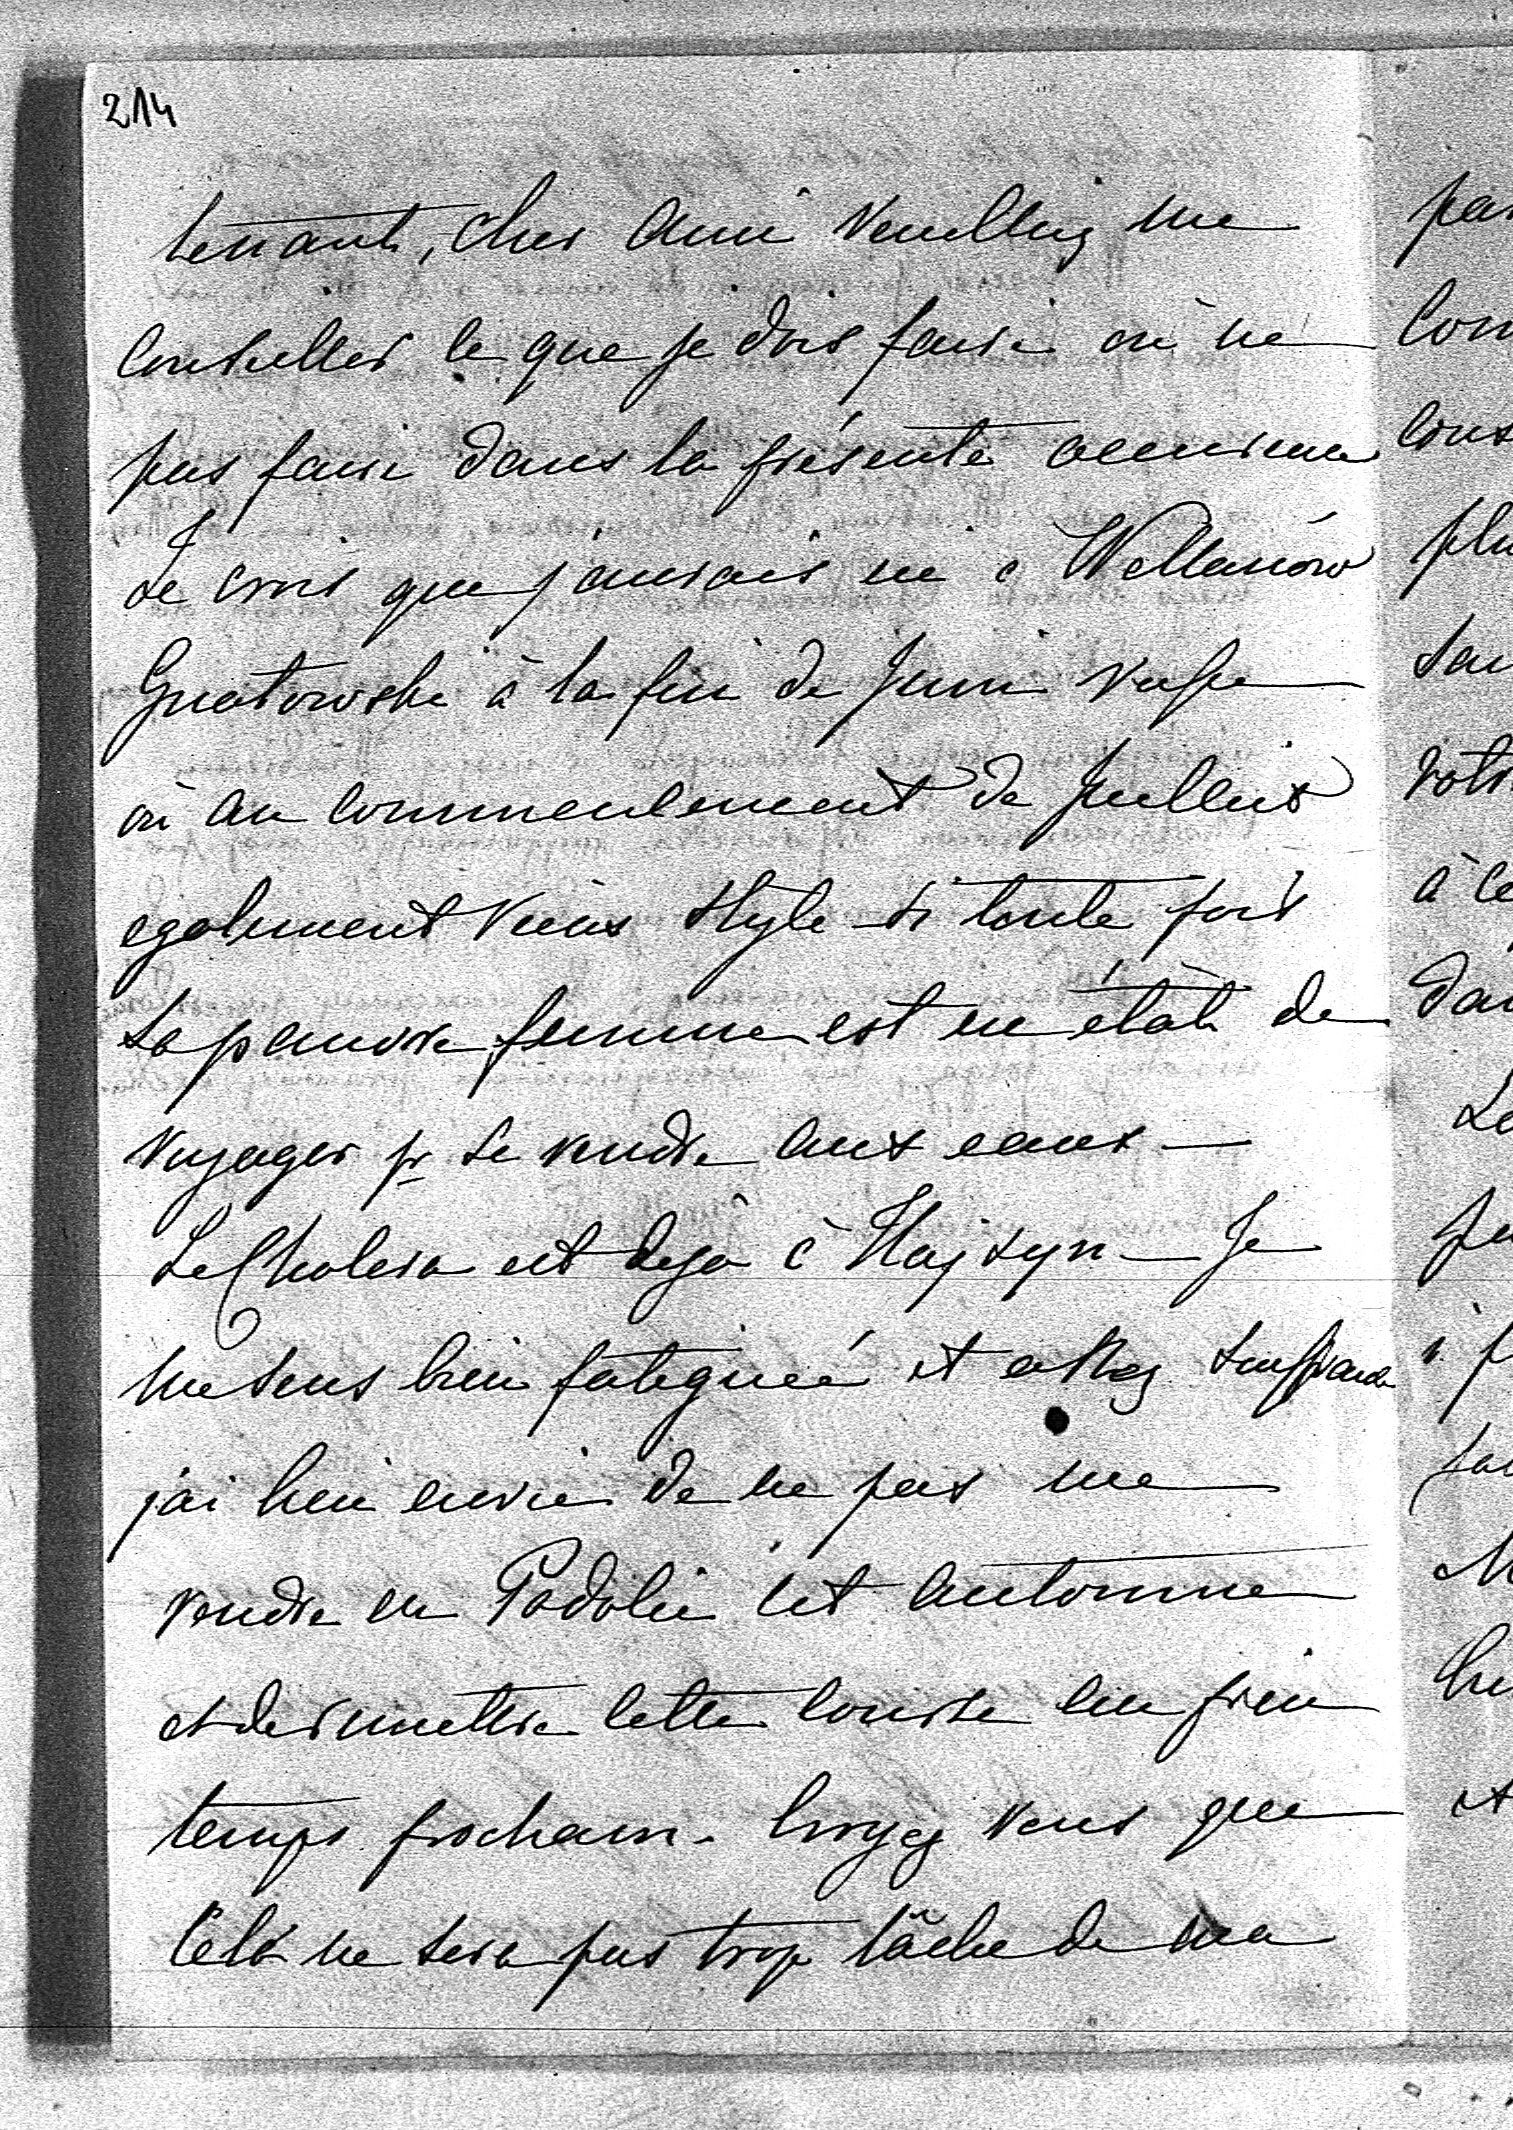 214
tenant, cher Ami veuillez me
conseiller ce que je dois faire où ne
pas faire dans la présente
Je crois que j'aurais ici à Willanów
Gnatowska à la fin de Juin
où au commencement de Juillet
egalement vieux style si toute fois
la pauvre femme est en état de
voyager pr se rendre aux eaux —
Le Cholera est deja à Hajsyn — Je
me sens bien fatiguée et assez
j'ai bien envie de ne pas me
rendre en Podolie cet automne
et de remettre cette course au prin
temps prochain. Croyez vous que
Cela ne sera pas trop lâche de ma